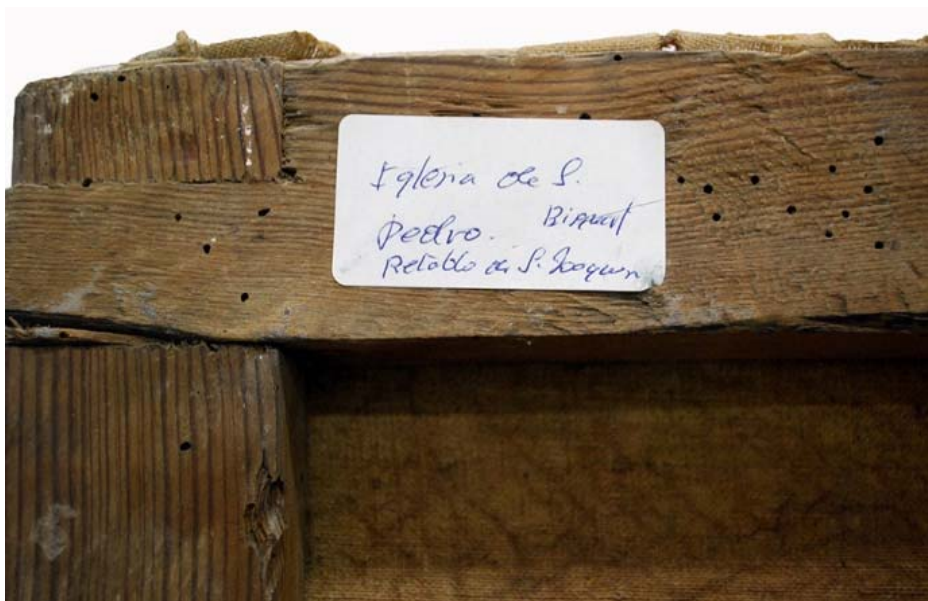 Iglesia de S.
Pedro.
Retablo de S. Joaquin